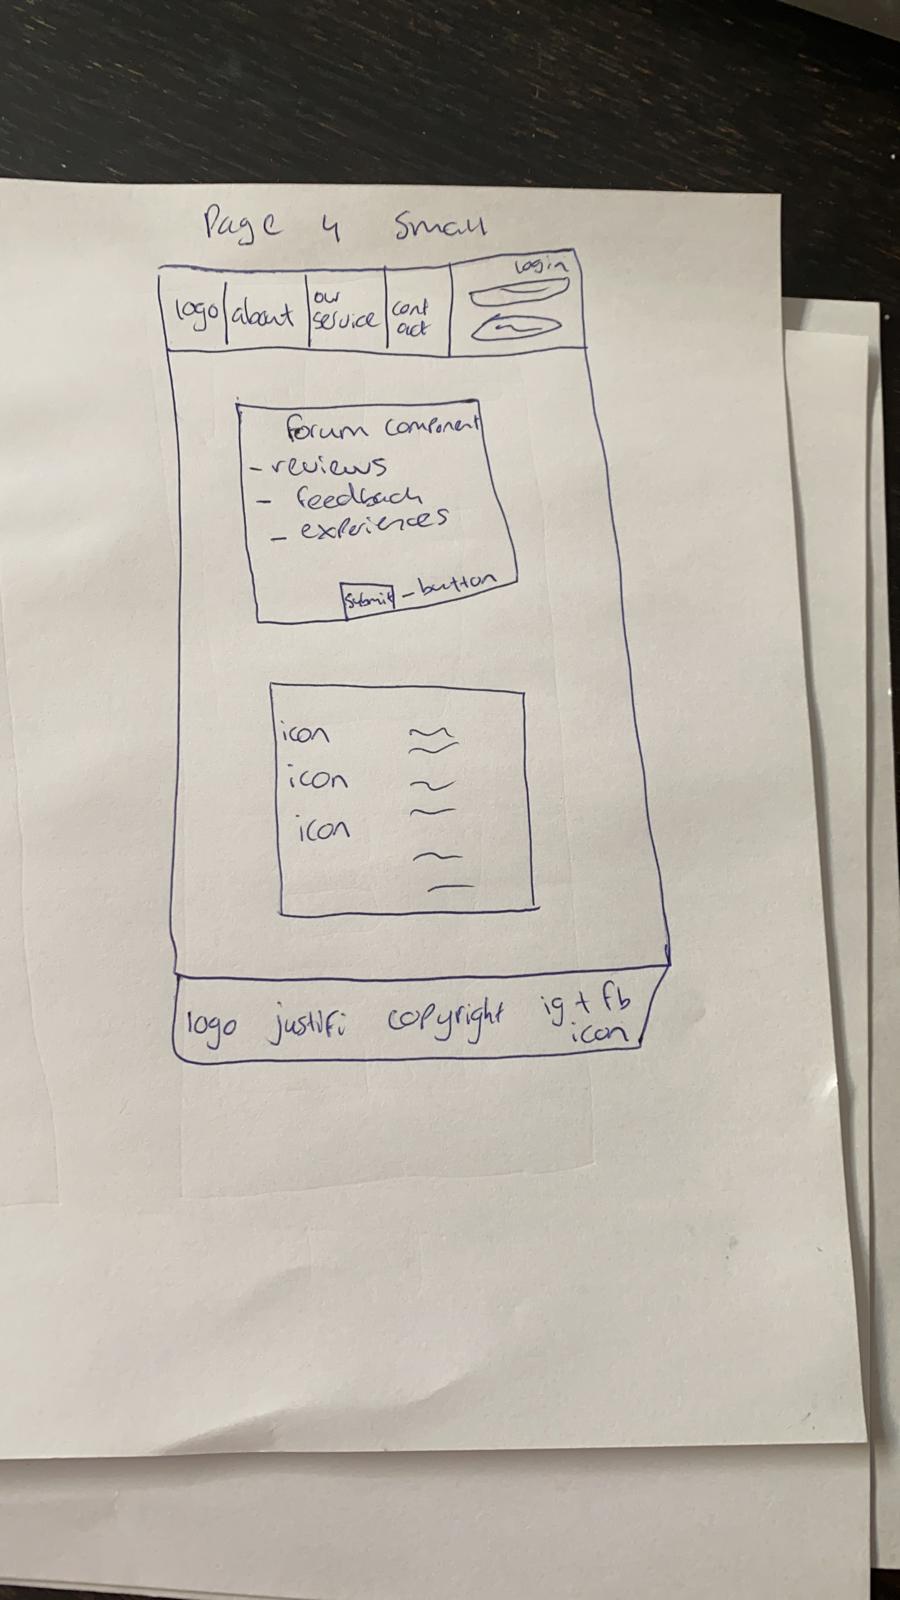 Page 4 Small
login
logo about our service cont act
forum component
- reviews
- feedback
- experiences
submit - button
icon
icon
icon
logo justifi copyright ig + fb
icon